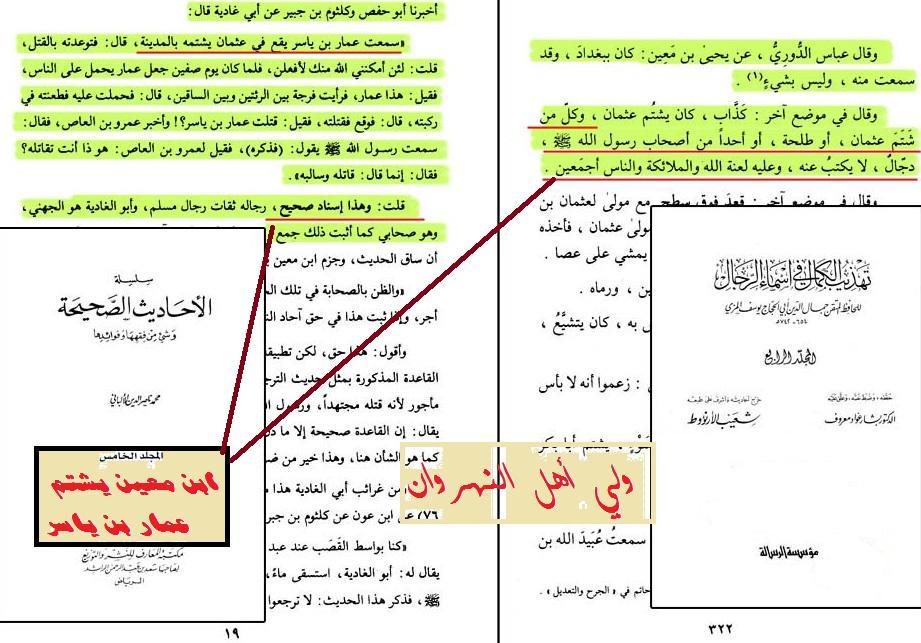 وقال عباس الدُّوريُّ ، عن يحيىٰ بن مَعِين: كان ببغدادَ ، وقد
سمعت منه ، وليس بشيءٍ(١) .
وقال في موضع آخر : كَذَّاب ، كان يشتُم عثمان ، وكلّ من
شَتَمَ عثمان ، أو طلحة ، أو أحداً من أصحاب رسول الله ﷺ ،
دجّالٌ ، لا يكتبُ عنه ، وعليه لعنة الله والملائكة والناس أجمَعين .
وقال في موضع آخر: قعدَ فوق سطحٍ مع مولىً لعثمان بن
مولىٰ عثمان ، فأخذه
يمشي على عصا .
ين ، ورماه .
ل به ، كان يتشيَّعُ ،
ل : زعموا أنه لا بأس
يشتم أبا بكر
سمعتُ عُبَيدَ الله بن
حاتم في « الجرح والتعديل » .
٣٢٢
تهذيب الكمال في أسماء الرجال
للحافظ المتقن جمال الدين أبي الحجاج يوسف المزي
٦٥٤ - ٧٤٢هـ
المجلد الرابع
حققه ، وضبط نصه ، وعلق عليه
الدكتور بشار عواد معروف
خرج أحاديثه وأشرف على طبعه
شعيب الأرنؤوط
مؤسسة الرسالة
أخبرنا أبو حفص وكلثوم بن جبير عن أبي غادية قال:
«سمعت عمار بن ياسر يقع في عثمان يشتمه بالمدينة، قال: فتوعدته بالقتل،
قلت: لئن أمكنني الله منك لأفعلن، فلما كان يوم صفين جعل عمار يحمل على الناس،
فقيل: هذا عمار، فرأيت فرجة بين الرئتين وبين الساقين، قال: فحملت عليه فطعنته في
ركبته، قال: فوقع فقتلته، فقيل: قتلت عمار بن ياسر؟! وأخبر عمرو بن العاص، فقال:
سمعت رسول الله ﷺ يقول: (فذكره)، فقيل لعمرو بن العاص: هو ذا أنت تقاتله؟
فقال: إنما قال: قاتله وسالبه».
قلت: وهذا إسناد صحيح، رجاله ثقات رجال مسلم، وأبو الغادية هو الجهني،
وهو صحابي كما أثبت ذلك جمع
أن ساق الحديث، وجزم ابن معين
«والظن بالصحابة في تلك
أجر، وإذا ثبت هذا في حق آحاد
وأقول: هذا حق، لكن تطبيق
القاعدة المذكورة بمثل حديث
مأجور لأنه قتله مجتهداً،
يقال: إن القاعدة صحيحة إلا ما
كما هو الشأن هنا، وهذا خير من
من غرائب أبي الغادية هذا
٧٦/٤) عن ابن عون عن كلثوم بن
«كنا بواسط القَصَب عند عبد
يقال له: أبو الغادية، استسقى ماءً،
ﷺ، فذكر هذا الحديث: لا ترجعوا
١٩
سلسلة
الأحاديث الصحيحة
وشيء من فقهها وفوائدها
محمد ناصر الدين الألباني
المجلد الخامس
مكتبة المعارف للنشر والتوزيع
لصاحبها سعد بن عبد الرحمن الراشد
الرياض
ابن معين يشتم
عمار بن ياسر
ولي أهل النهروان